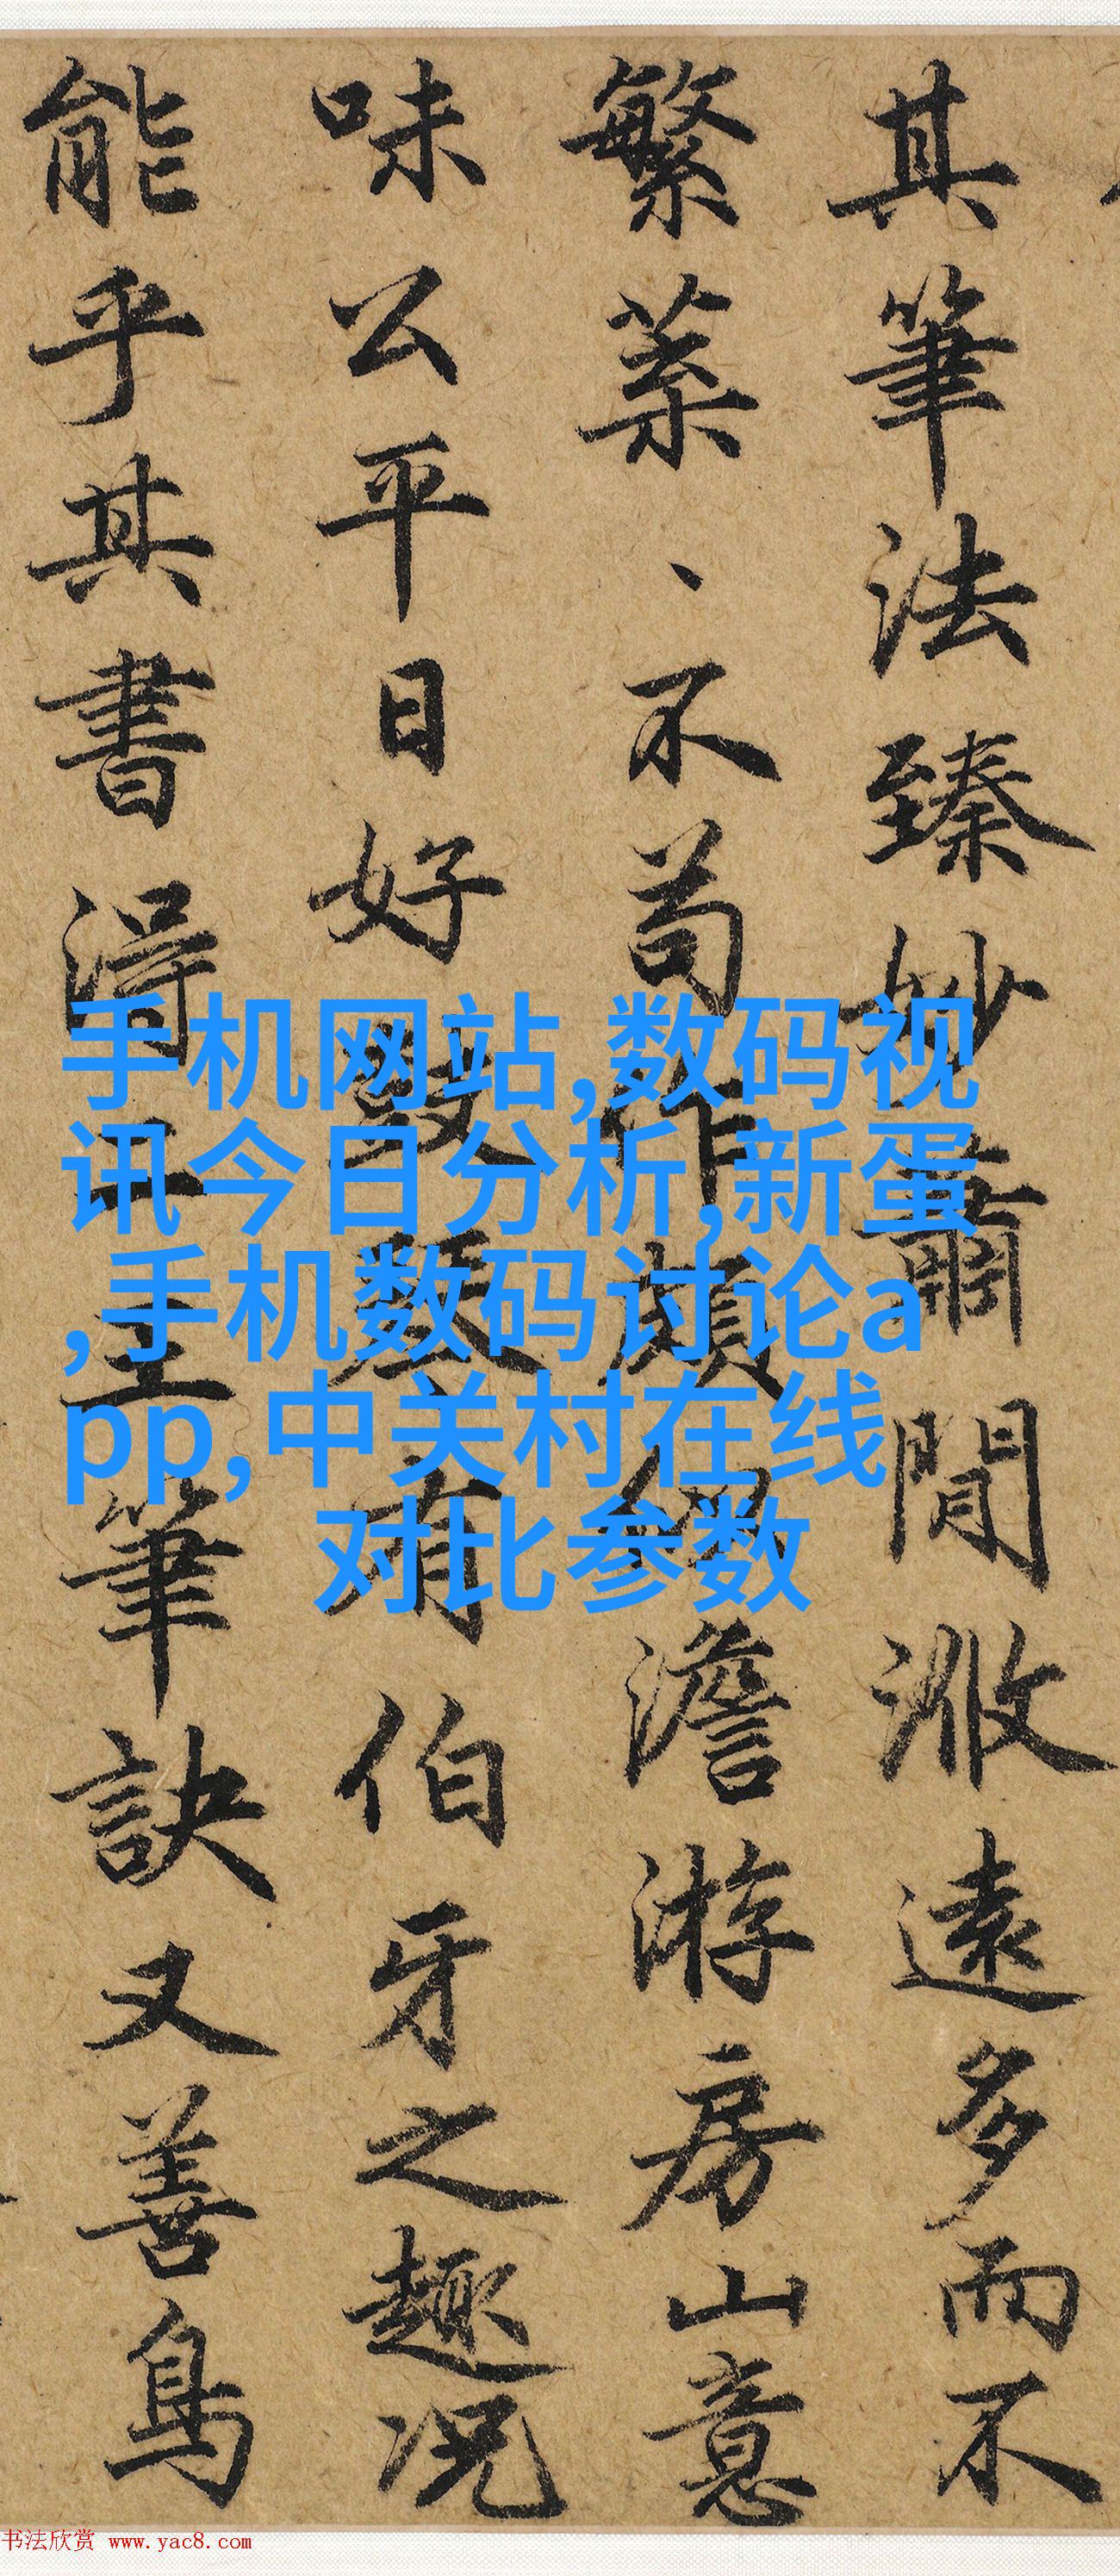 其筆法臻妙蕭閒遠多而不
繁葉、不苟作頗澹游房山意
味公平日好鼓琴有伯牙之趣况
能乎其書得二王筆訣又善鳥
手机网站,数码视
讯今日分析,新蛋
,手机数码讨论a
pp,中关村在线
对比参数
书法欣赏 www.yac8.com